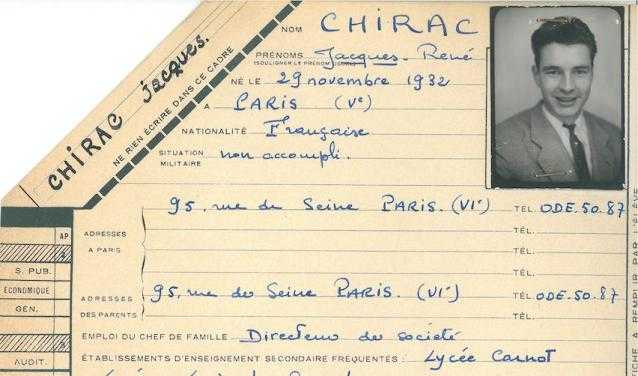 CHIRAC Jacques.
NE RIEN ÉCRIRE DANS CE CADRE
NOM CHIRAC
PRÉNOMS Jacques - René
(SOULIGNER LE PRÉNOM
NÉ LE 29 novembre 1932
A PARIS (Ve)
NATIONALITÉ Française
SITUATION MILITAIRE non accompli.
95, rue de Seine PARIS. (VIe) TÉL. ODE.50.87
ADRESSES A PARIS
TÉL.
TÉL.
TÉL.
ADRESSES DES PARENTS
95, rue de Seine PARIS. (VIe) TÉL. ODE.50.87
TÉL.
EMPLOI DU CHEF DE FAMILLE : Directeur de société
ÉTABLISSEMENTS D'ENSEIGNEMENT SECONDAIRE FRÉQUENTÉS : Lycée Carnot
AP
S. PUB.
ECONOMIQUE
GEN.
AUDIT.
FICHE A REMPLIR PAR L'ÉLÈVE